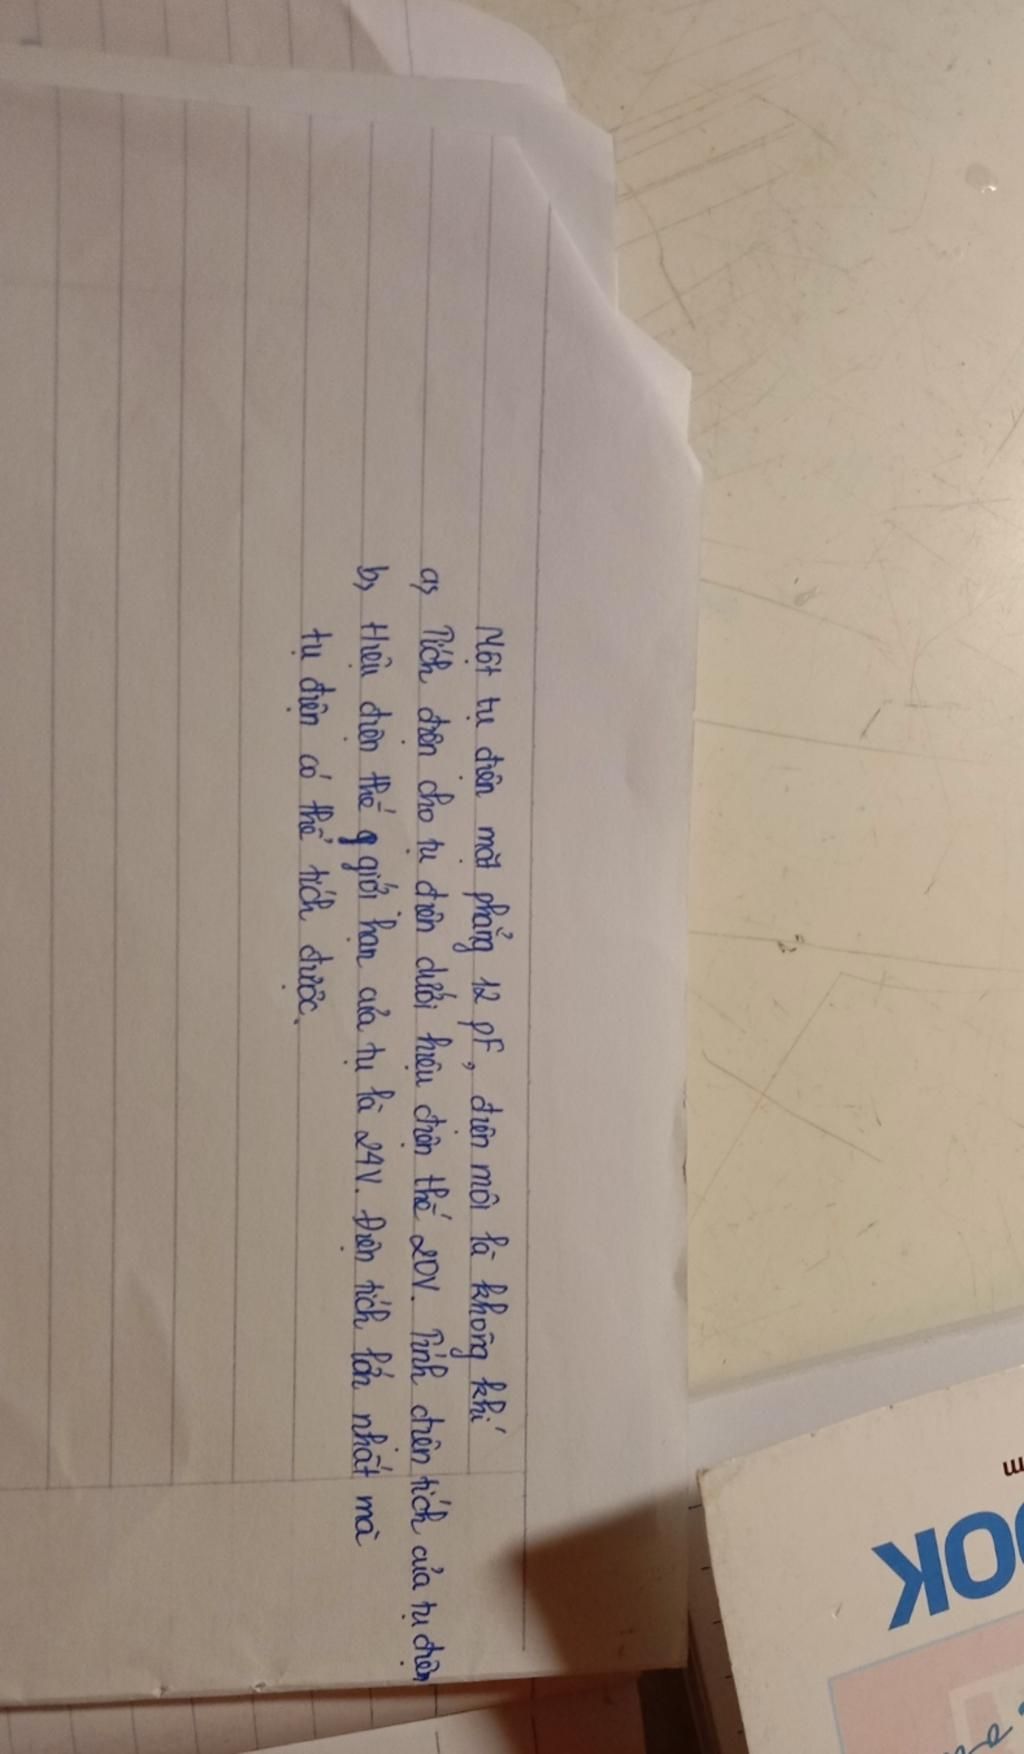 Một tụ điện mặt phẳng 12 pF, điện môi là không khí
a, Tích điện cho tụ điện dưới hiệu điện thế 20V. Tính điện tích của tụ điện
b, Hiệu điện thế g giới hạn của tụ là 24V. Điện tích lớn nhất mà
tụ điện có thể tích được.
OOK